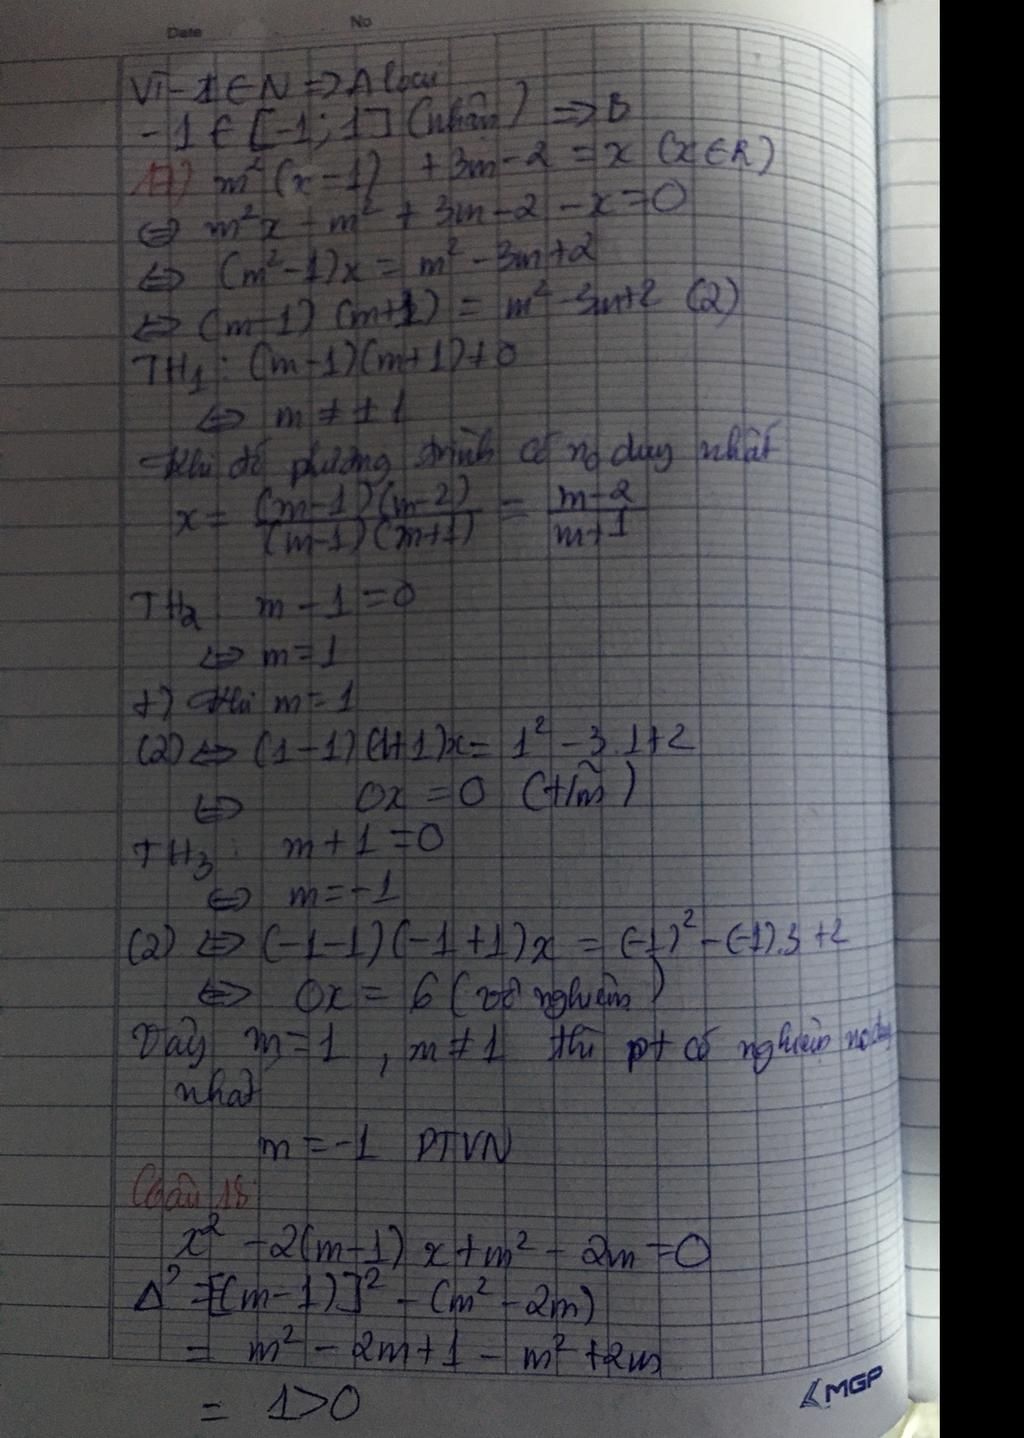 Date No
Vì -1 ∈ N => A loại
-1 ∈ [-1; 1] (nhận) => B
17) m²(x-1) + 3m-2 = x (x∈R)
⇔ m²x - m² + 3m-2 -x=0
⇔ (m²-1)x = m² -3m+2
⇔ (m-1)(m+1) = m² -3m+2 (2)
TH1: (m-1)(m+1)≠0
⇔ m ≠ ±1
Khi đó phương trình có no duy nhất
x = (m-1)(m-2)/(m-1)(m+1) = m-2/m+1
TH2 m-1=0
⇔ m=1
+) Khi m=1
(2) ⇔ (1-1)(1+1)x= 1² -3.1+2
⇔ 0x =0 (t/m)
TH3: m+1=0
⇔ m=-1
(2) ⇔ (-1-1)(-1+1)x = (-1)² -(-1).3 +2
⇔ 0x = 6 (vô nghiệm)
Vậy m=1 , m≠1 thì pt có nghiệm no duy
nhất
m=-1 PTVN
Câu 18:
x² -2(m-1) x+m² - 2m=0
Δ' =[(m-1)]² -(m² -2m)
= m² -2m+1 - m² +2m
= 1>0
MGP